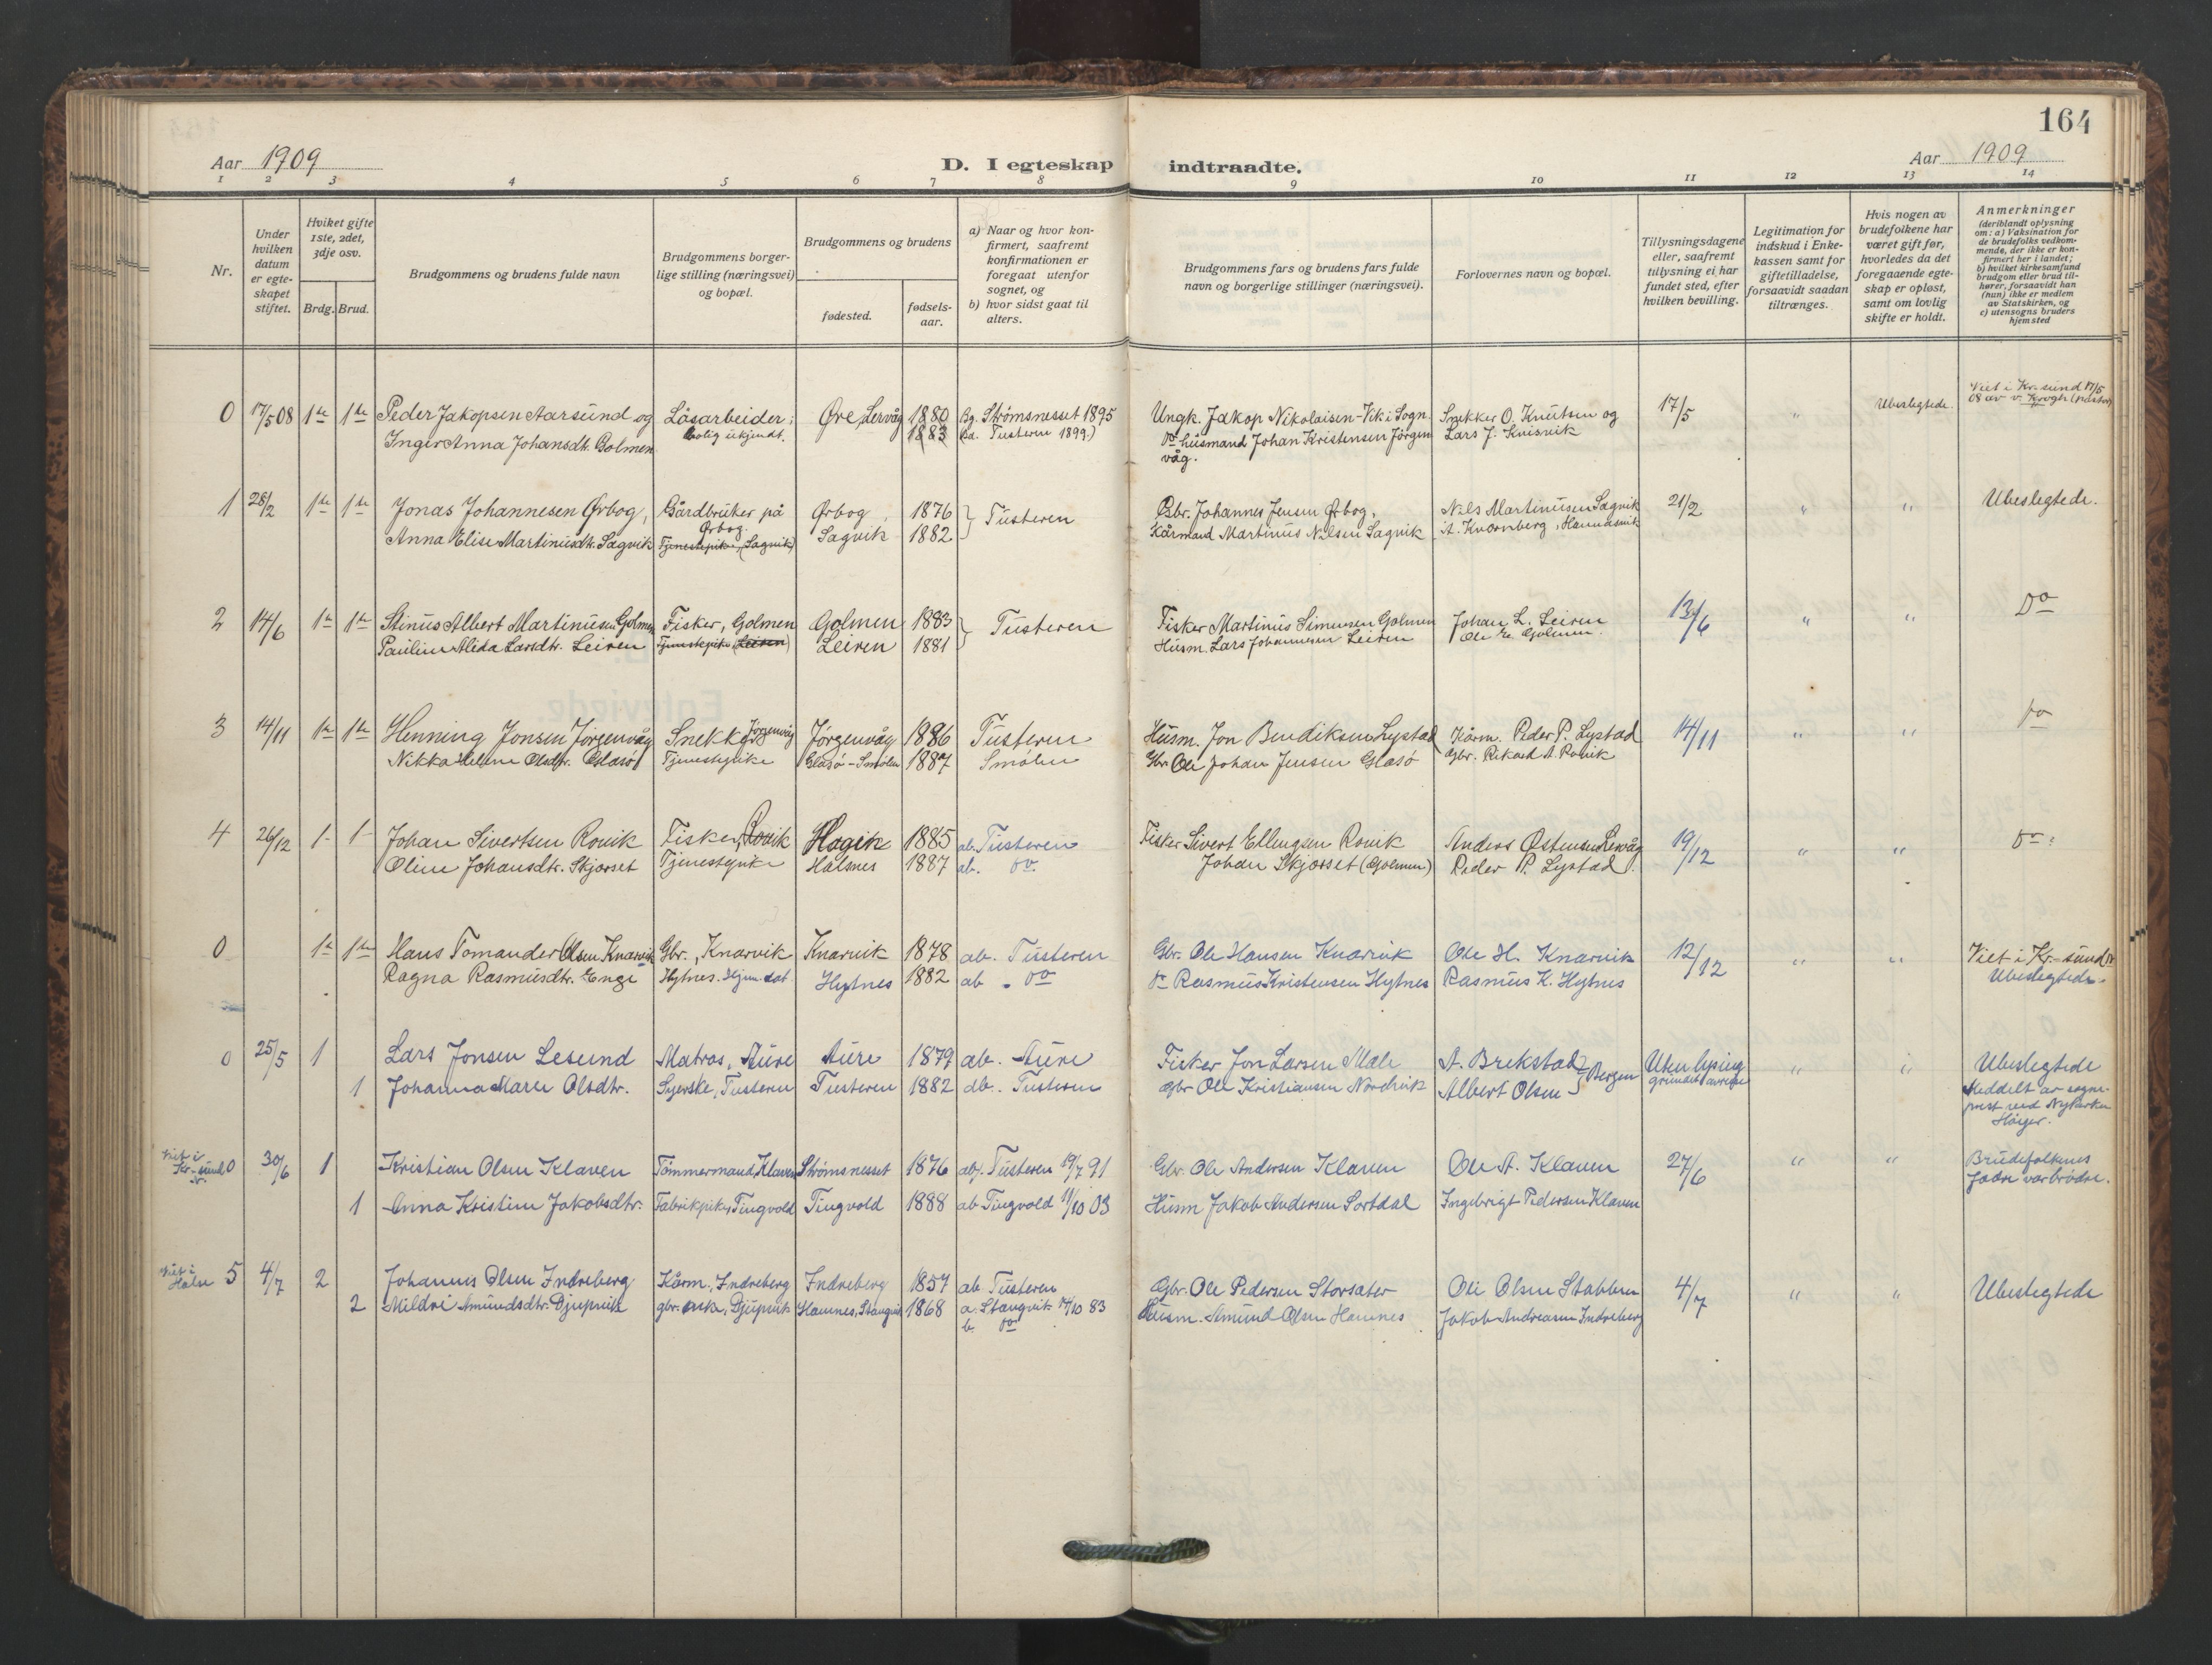 164
Aar 1909
D. I egteskap indtraadte.
Aar 1909
1 2 3 4 5 6 7 8 9 10 11 12 13 14
Nr.
Under hvilken datum er egteskapet stiftet.
Hvilket gifte 1ste, 2det, 3dje osv.
Brdg. Brud.
Brudgommens og brudens fulde navn
Brudgommens borgerlige stilling (næringsvei) og bopæl.
Brudgommens og brudens
fødested.
fødselsaar.
a) Naar og hvor konfirmert, saafremt konfirmationen er foregaat utenfor sognet, og
b) hvor sidst gaat til alters.
Brudgommens fars og brudens fars fulde navn og borgerlige stillinger (næringsvei).
Forlovernes navn og bopæl.
Tillysningsdagene eller, saafremt tillysning ei har fundet sted, efter hvilken bevilling.
Legitimation for indskud i Enkekassen samt for giftetilladelse, forsaavidt saadan tiltrænges.
Hvis nogen av brudefolkene har været gift før, hvorledes da det foregaaende egteskap er opløst, samt om lovlig skifte er holdt.
Anmerkninger (deriblandt oplysning om: a) Vaksination for de brudefolks vedkommende, der ikke er konfirmert her i landet; b) hvilket kirkesamfund brudgom eller brud tilhører, forsaavidt han (hun) ikke er medlem av Statskirken, og c) utensogns bruders hjemsted
0 17/5 08 1ste 1ste Peder Jakopsen Aarsund og Løsarbeider; Øre Lervåg 1880 Bg. Strømsnesset 1895 Ungk. Jakop Nikolaisen-Vik i Sogn. Snekker O. Knutsen og 17/5 " Ubeslegtede. Viet i Kr.sund 17/5 08 av v. Krogh (pastor)
Inger Anna Johansdtr. Golmen bolig ukjendt. 1883 Bd. Tusteren 1899.) Do husmand Johan Kristensen Jörgenvåg. Lars J. Knisvik
1 28/2 1ste 1ste Jonas Johannesen Ørbog, Gårdbruker på Ørbog. Ørbog, 1876 Tusteren Gbr. Johannes Jensen Ørbog, Nils Martinusen Sagvik 21/2 " " Ubeslegtede.
Anna Elise Martinusdtr. Sagvik Tjenestepike (Sagvik) Sagvik 1882 Kårmand Martinus Nilsen Sagvik A. Kvernberg, Hannasvik
2 14/6 1ste 1ste Stinus Albert Martinusen Golmen Fisker, Golmen Golmen 1883 Tusteren Fisker Martinus Simensen Golmen Johan L. Leiren 13/6 " " Do
Pauline Alida Larsdtr. Leiren Tjenestepike (Leiren) Leiren 1881 Husm. Lars Johannesen Leiren Ole E. Golmen.
3 14/11 1ste 1ste Henning Jonsen Jörgenvåg Snekker Jörgenvåg Jörgenvåg 1886 Tusteren Husm. Jon Bendiksen Lystad Kårm. Peder P. Lystad 14/11 " " Do
Nikka Helene Olsdtr. Glasø Tjenestepike Glasø-Smølen 1887 Smølen Gbr. Ole Johan Jensen Glasø Gbr. Rikard A. Rovik
4 26/12 1- 1- Johan Sivertsen Rovik Fisker, Rovik 1885 ab. Tusteren Fisker Sivert Ellingsen Rovik Anders Østensen Lervåg 19/12 " " Do.
Oline Johansdtr. Skjørset Tjenestepike Halsnes 1887 ab. Do. Johan Skjørset (Golmen) Peder P. Lystad.
0 1ste 1ste Hans Tomander Olsen Knarvik Gbr., Knarvik Knarvik 1878 ab. Tusteren Gbr. Ole Hansen Knarvik Ole H. Knarvik 12/12 " " Viet i Kr.-sund N
Ragna Rasmusdtr. Enge Hytnes. Hytnes 1882 ab. Do Do Rasmus Kristensen Hytnes Rasmus K. Hytnes Ubeslegtede.
0 25/5 1 Lars Jonsen Lesund Matros, Aure Aure 1879 ab. Aure Fisker Jon Larsen Male A. Brekstad Bergen Uten lysing grundet avreise " " Ubeslegtede
1 Johanna Marie Olsdtr. Syerske, Tusteren Tusteren 1882 ab. Tusteren gbr. Ole Kristiansen Nordvik Albert Olsen Meddelt av sogneprest ved Nykirken Høyer.
Viet i Kr.-sund N. 0 30/6 1 Kristian Olsen Klaven Tømmermand, Klaven Strømsnesset 1876 ab. Tusteren 19/7 91 Gbr. Ole Andersen Klaven Ole A. Klaven 27/6 " " Brudefolkenes fædre var brødre.
1 Anna Kristine Jakobsdtr. Fabrikpike, Tingvold Tingvold 1888 ab Tingvold 11/10 03 Husm Jakob Andersen Sortdal Ingebrigt Pedersen Klaven
Viet i Halse 5 4/7 2 Johannes Olsen Indreberg Kårm., Indreberg Indreberg 1857 ab Tusteren Gbr. Ole Pedersen Storsæter Ole Olsen Stabben 4/7 " " Ubeslegtede
2 Mildri Amundsdtr. Djupvik gbr. enke, Djupvik Hamnes, Stangvik 1868 a. Stangvik 14/10 83 b. Do Husm. Amund Olsen Hamnes Jakob Andreasen Indreberg